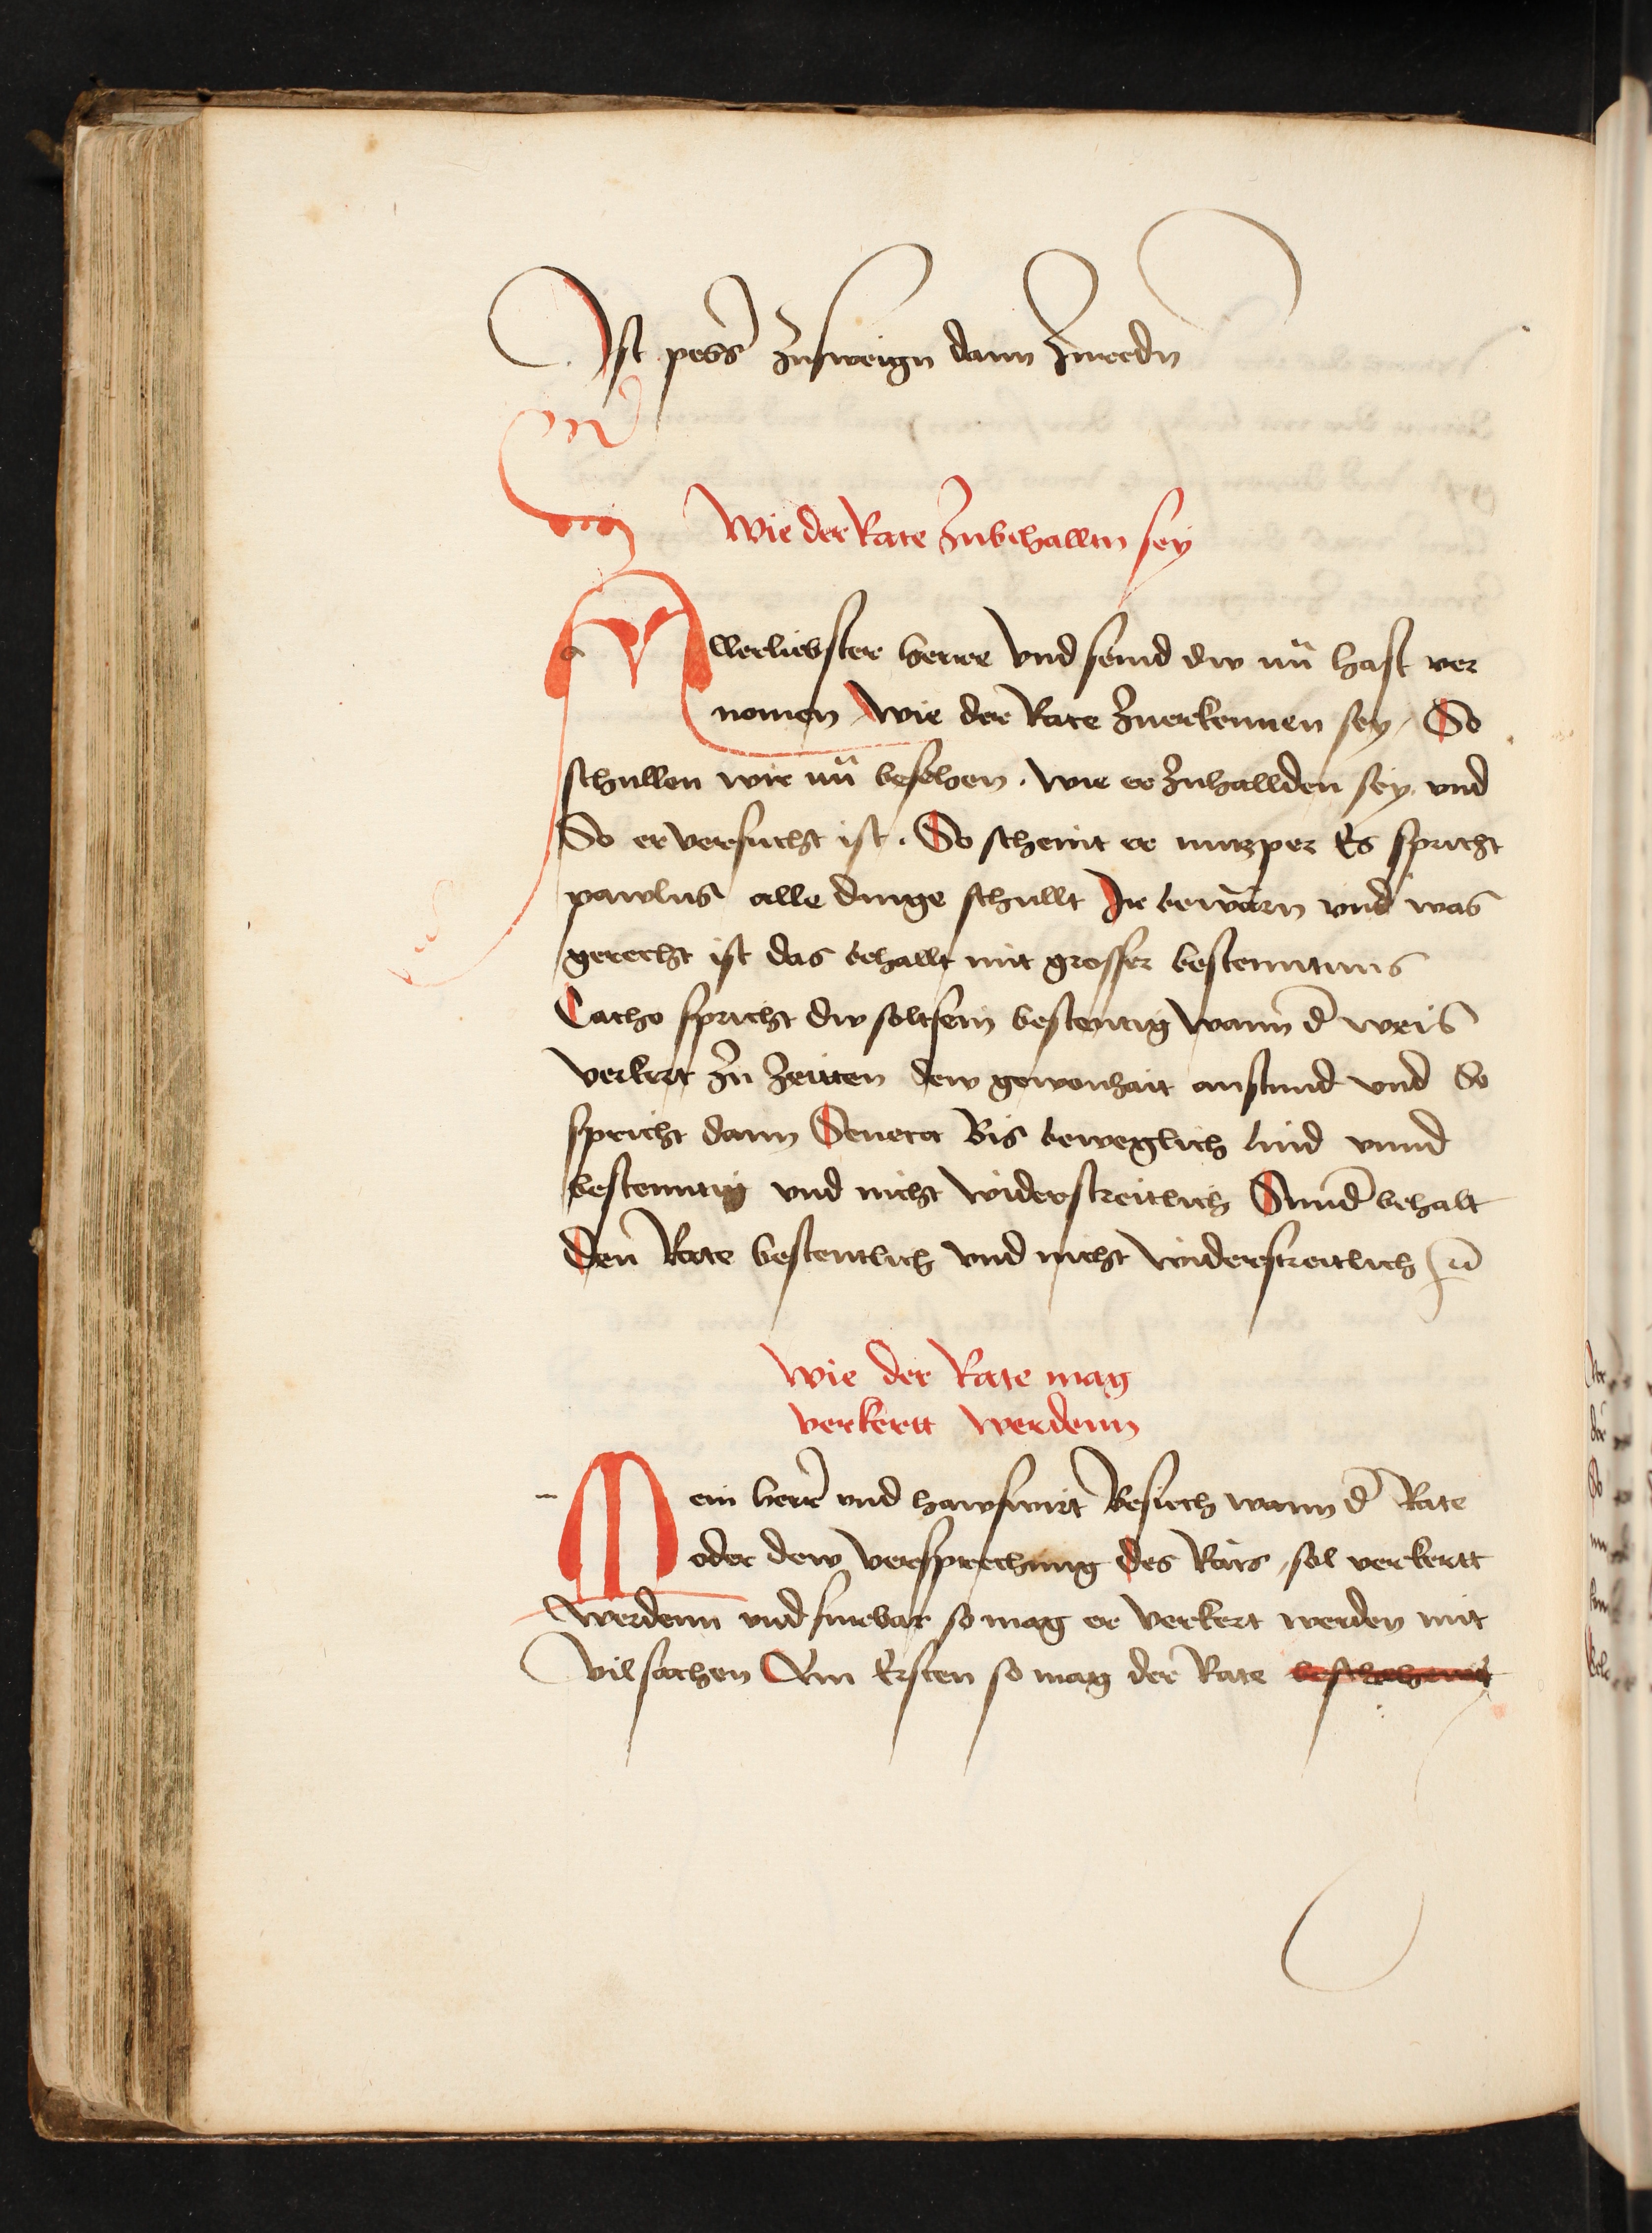 Ist pess(er) zusweign dann zureden
Wie der Rate zubehalltn sey
Allerliebster herre vnd seind dw nu hast ver
nomen wie der Rate zuerkennen sey / So
schullen wir nu besehen . wie er zuhallden sey vnd
So er versucht ist . So scheint er nutzper Es spricht
pawlus alle dinge schullt Ir bewarn vnd was
gerecht ist das behallt mit grosser bestenntnus
Catho spricht dw solt sein bestentig wann d weis
verkert zu Zeitten dew gewonhait anstund vnd So
spricht dann Seneca Bis beweglich lind vnnd
bestenntig vnd nicht widerstreitlich Sund behalt
Den Rate bestentlich vnd nicht widerstreitlich
Wie der Rate mag
verkertt werdenn
Mein herr vnd hawswirt Besiech wann d Rate
oder dew versprechung des Rats / sol verkertt
werdenn vnd furbar so mag er verkert werden mit
vil sachen Am Ersten so mag der Rate